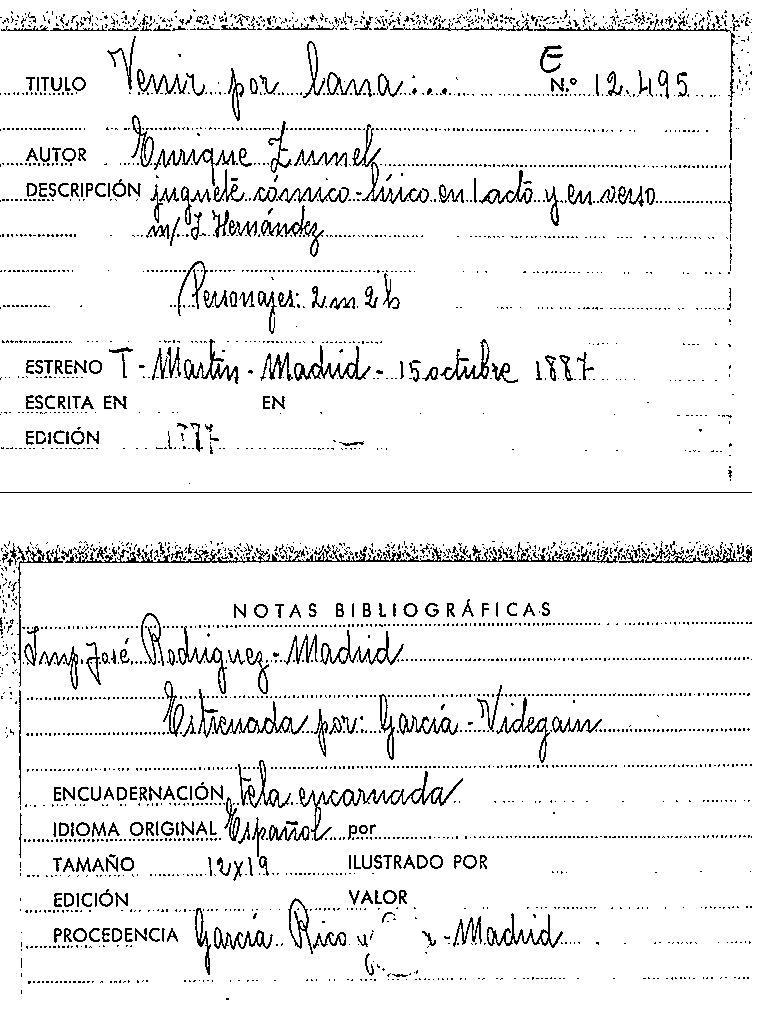 E
TITULO Venir por lana... N.º 12.495
AUTOR Enrique Zumel
DESCRIPCIÓN juguete cómico-lírico en 1 acto y en verso
m/ I Hernández
Personajes: 2 m 2 h
ESTRENO T - Martin - Madrid - 15 octubre 1887
ESCRITA EN EN
EDICIÓN
NOTAS BIBLIOGRÁFICAS
Imp. José Rodriguez - Madrid
Estrenada por: García - Videgain
ENCUADERNACIÓN tela encarnada
IDIOMA ORIGINAL Español por
TAMAÑO 12x19 ILUSTRADO POR
EDICIÓN VALOR
PROCEDENCIA García Rico y - Madrid